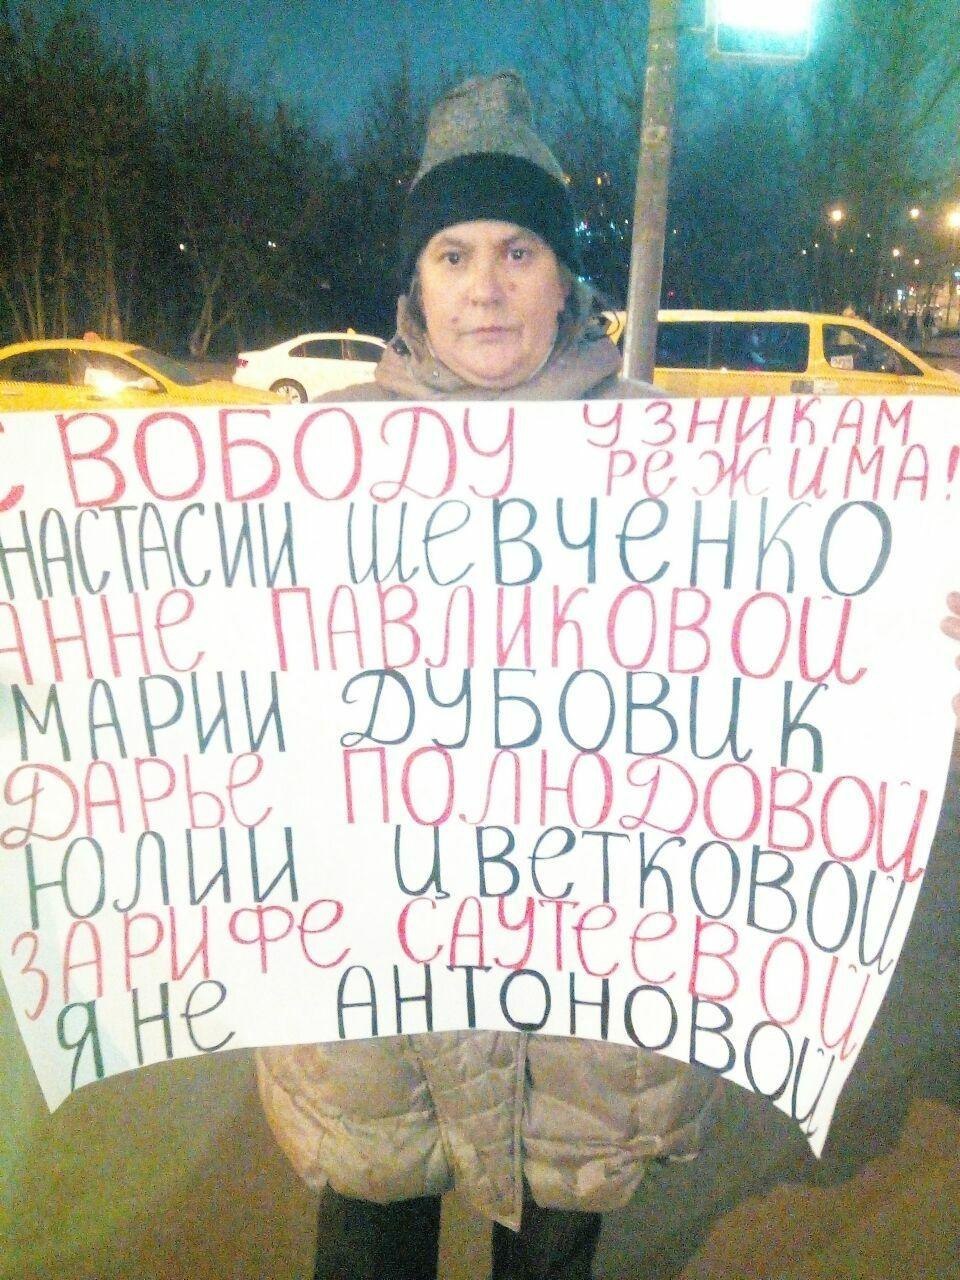 СВОБОДУ УЗНИКАМ
РЕЖИМА!
НАСТАСИИ ШЕВЧЕНКО
АННЕ ПАВЛИКОВОЙ
МАРИИ ДУБОВИК
ДАРЬЕ ПОЛЮДОВОЙ
ЮЛИИ ЦВЕТКОВОЙ
ЗАРИФЕ САУТЕЕВОЙ
ЯНЕ АНТОНОВОЙ